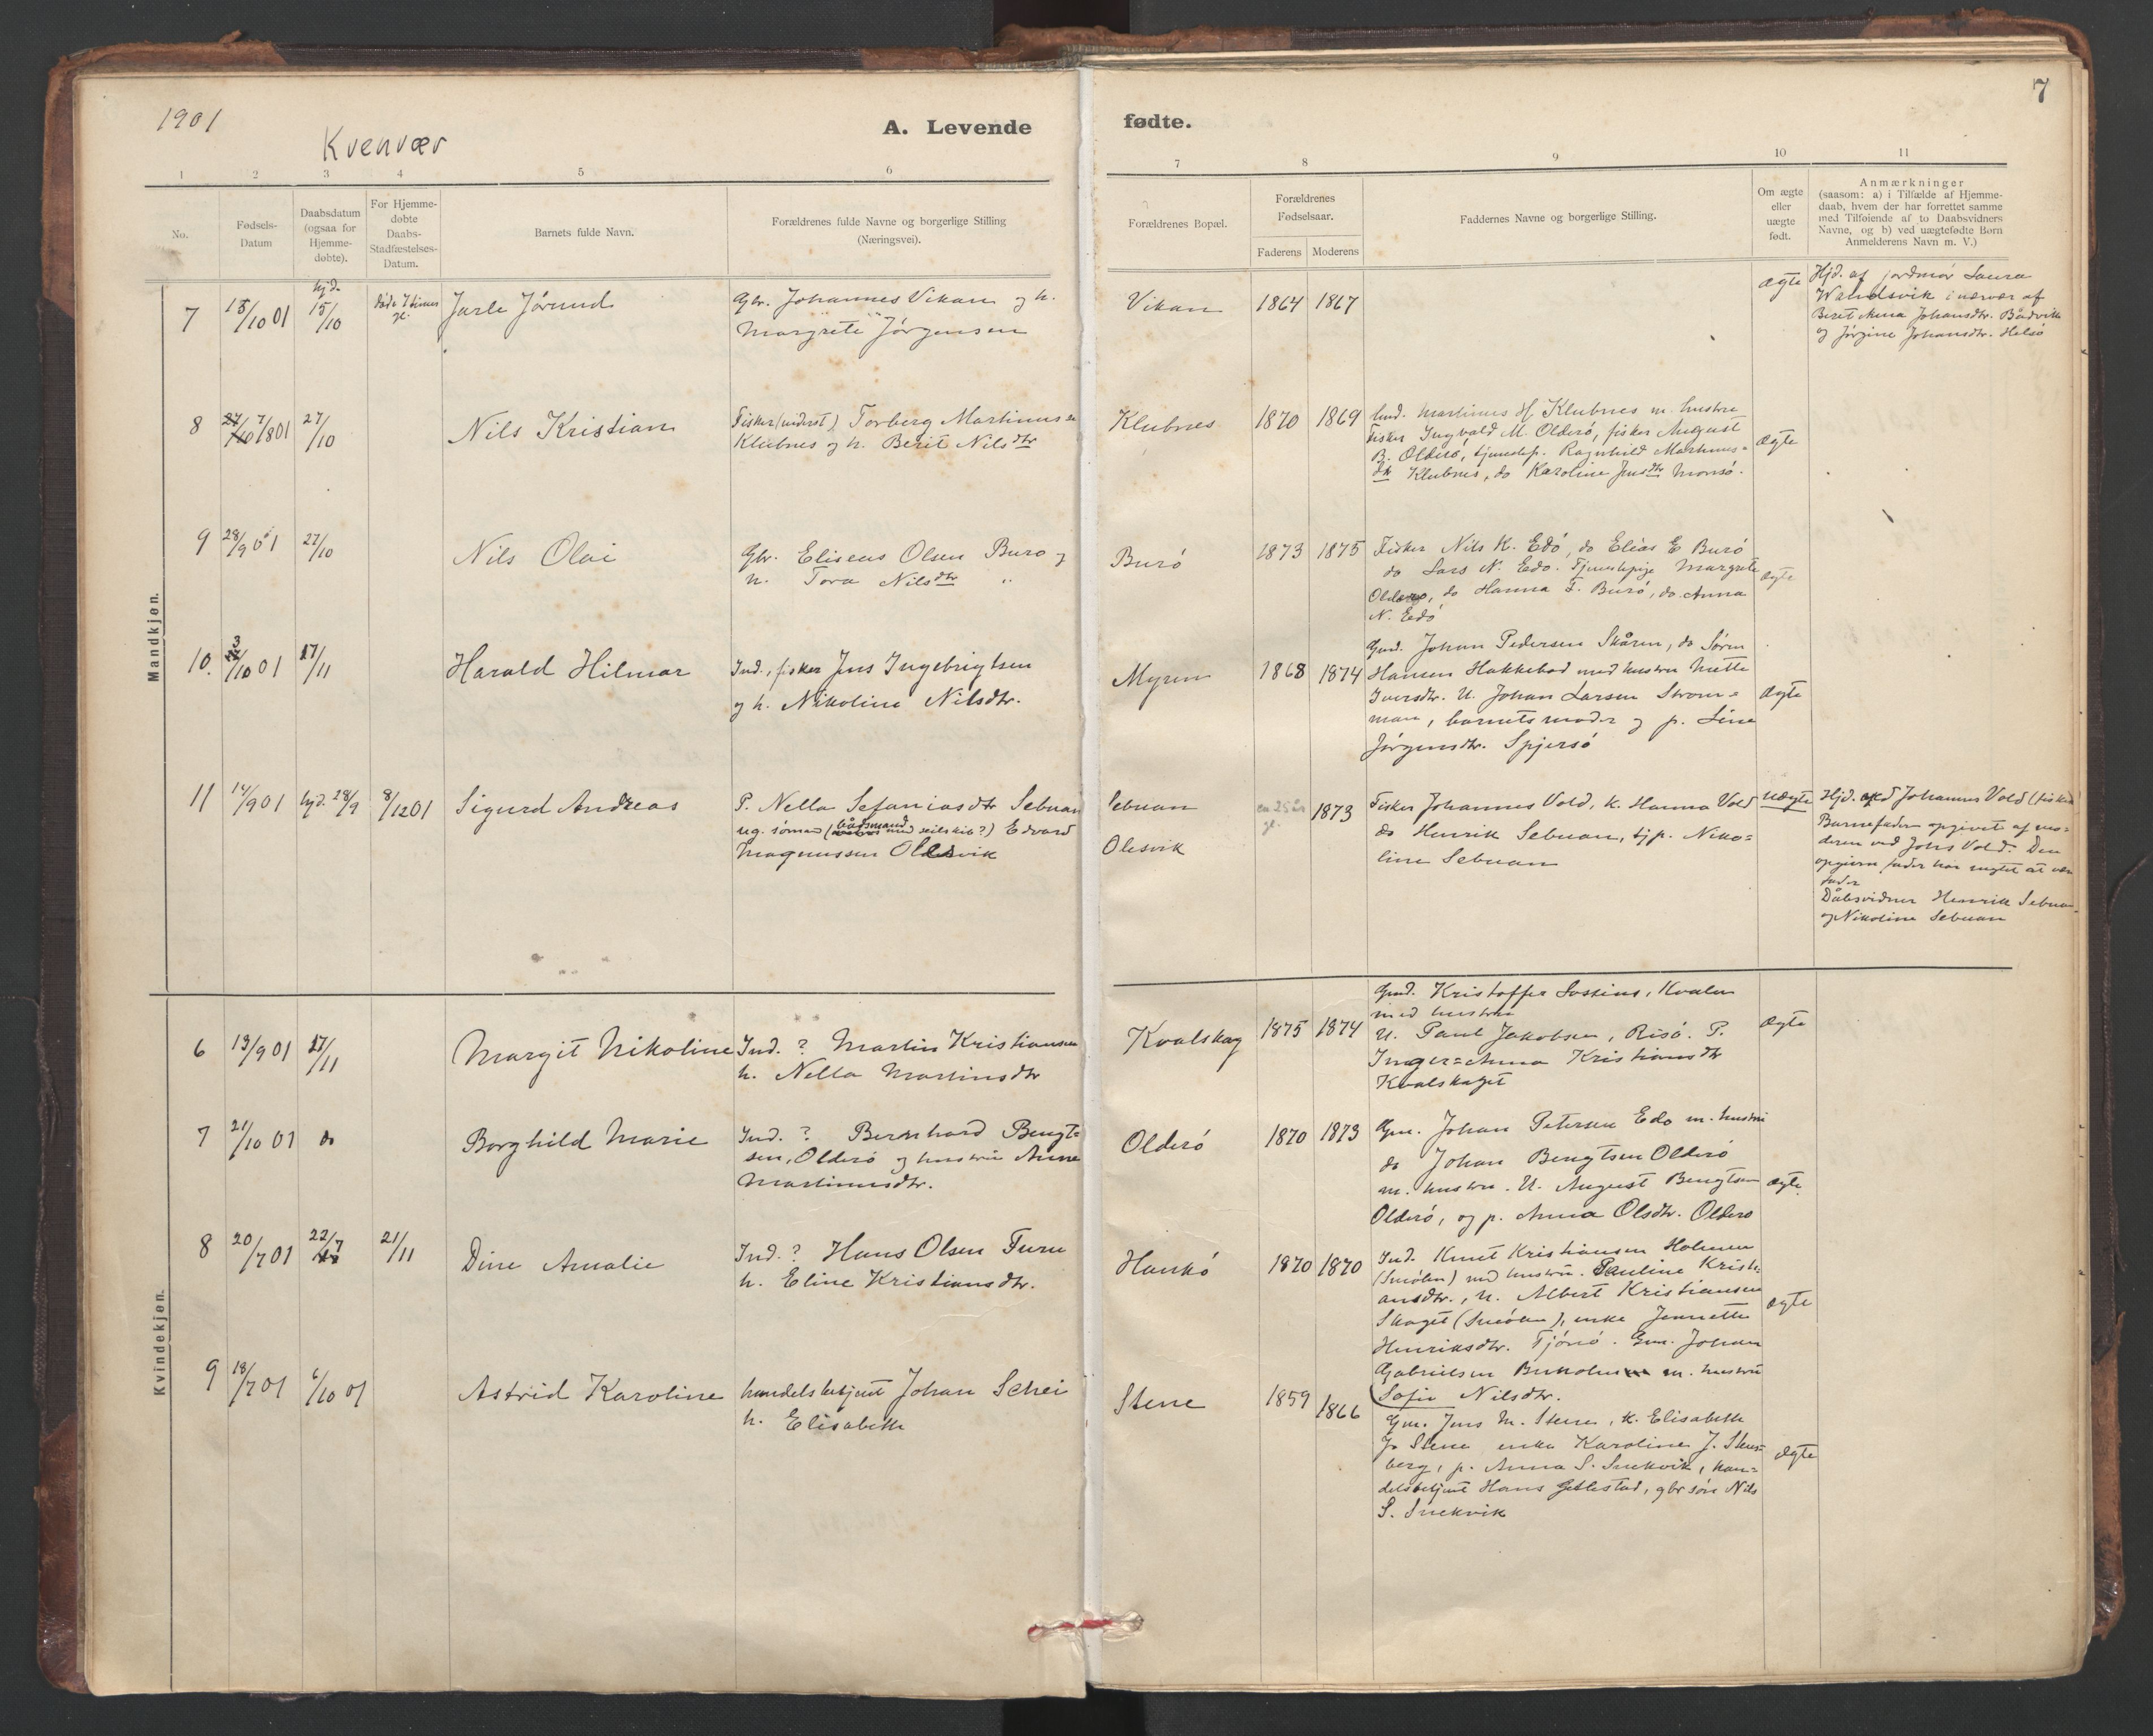 1901
Kvenvær
A. Levende fødte.
7
1 2 3 4 5 6 7 8 9 10 11
No.
Fødsels-
Datum
Daabsdatum
(ogsaa for
Hjemme-
døbte).
For Hjemme-
døbte
Daabs-
Stadfæstelses-
Datum.
Barnets fulde Navn.
Forældrenes fulde Navne og borgerlige Stilling
(Næringsvei).
Forældrenes Bopæl.
Forældrenes
Fødselsaar.
Faderens Moderens
Faddernes Navne og borgerlige Stilling.
Om ægte
eller
uægte
født.
Anmærkninger
(saasom: a) i Tilfælde af Hjemme-
daab, hvem der har forrettet samme
med Tilføiende af to Daabsvidners
Navne, og b) ved uægtefødte Børn
Anmelderens Navn m. V.)
Mandkjøn.
7
15/10 01
hjd.
15/10
døde 7 timer
gl.
Jarle Jørund
Gbr. Johannes Vikan og h.
Margrete Jørgensen
Vikan
1864
1867
ægte
Hjd. af jordmor Laura
Wandsvik i nærvær af
Beret Anna Johansdtr. Bådvik
og Jørgine Johansdtr. Helsø
8
27/10 7/8 01
27/10
Nils Kristian
Fisker (inderst) Torberg Martinusen
Klubnes og h. Berit Nilsdtr
Klubnes
1870
1869
Ind. Martinus Klubnes m. hustru
Fisker Ingvald M. Olderø, fisker August
B. Olderø, tjenestep. Ragnhild Martinus=
dtr Klubnes, do Karoline Jensdtr Monsø.
ægte
9
28/9 01
27/10
Nils Olai
Gbr. Eliseus Olsen Burø og
h. Tora Nilsdtr "
Burø
1873
1875
Fisker Nils K. Edø, do Elias E Burø
do Lars N. Edø. Tjenestepige Margrete
Olderø, do Hanna F. Burø, do Anna
N. Edø
ægte
10.
3/10 01
17/11
Harald Hilmar
Ind., fisker Jens Ingebrigtsen
og h. Nikoline Nilsdtr.
Myren
1868
1874
Gmd. Johan Pedersen Skåren, do Søren
Hansen Hakkebad med hustru Mette
Iversdtr. U. Johan Larsen Strøm=
man, barnets moder og p. Line
Jørgensdtr. Spjersø
Ægte
11
14/9 01
hjd. 28/9
8/12 01
Sigurd Andreas
P. Nella Sefaniasdtr Sebuan
ug. sømand (bådsmand med seilskib?) Edvard
Magnussen Olesvik
Sebuan
Olesvik
ca 25 år
gl.
1873
Fisker Johannes Vold, k. Hanna Vold
do Henrik Sebuan, tjp. Niko=
line Sebuan
uægte
Hjd. ved Johannes Vold (fisker)
Barnefader opgivet af mo=
deren ved Johs Vold. Den
opgivne fader har nægtet at være
fader
Dåbsvidner Henrik Sebuan
og Nikoline Sebuan
Kvindekjøn.
6
13/9 01
17/11
Margit Nikoline
Ind. ? Martin Kristiansen
h. Nella Martinsdtr
Kvalskag
1875
1874
Gmd. Kristoffer Kvalen
med hustru
U. Paul Jakobsen, Risø. P.
Inger=Anna Kristiansdtr
Kvalskaget
Ægte
7
21/10 01
do
Borghild Marie
Ind. ? Bernhard Bengt=
sen, Olderø og hustru Anne
Martinusdtr.
Olderø
1870
1873
Gm. Johan Petersen Edø m. hustru
do Johan Bengtsen Olderø
m. hustru. U. August Bengtsen
Olderø, og p. Anna Olsdtr. Olderø
ægte
8
20/7 01
22/7
21/11
Dine Amalie
Ind. ? Hans Olsen Furu
h. Eline Kristiansdtr.
Hankø
1870
1870
Ind. Knut Kristiansen Holmen
(Smølen) med hustru. Pauline Kristi=
ansdtr., U. Albert Kristiansen
Skaget (Smølen), enke Jennette
Henriksdtr. Tjønnø. Gm. Johan
Gabrielsen m. hustru
Sofie Nilsdtr.
ægte
9
18/7 01
6/10 01
Astrid Karoline
handelsbetjent Johan Schei
h. Elisabeth
Stene
1859
1866
Gm. Jens M. Stene, k. Elisabeth
J. Stene enke Karoline J. Stens=
berg, p. Anna S. Snekvik, han=
delsbetjent Hans Gellestad, gbr søn Nils
S. Snekvik
ægte